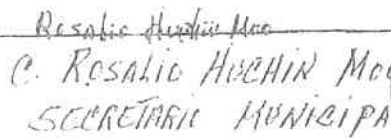 Rosalio Huchin Moo
C. ROSALIO HUCHIN MOO
SECRETARIO MUNICIPA